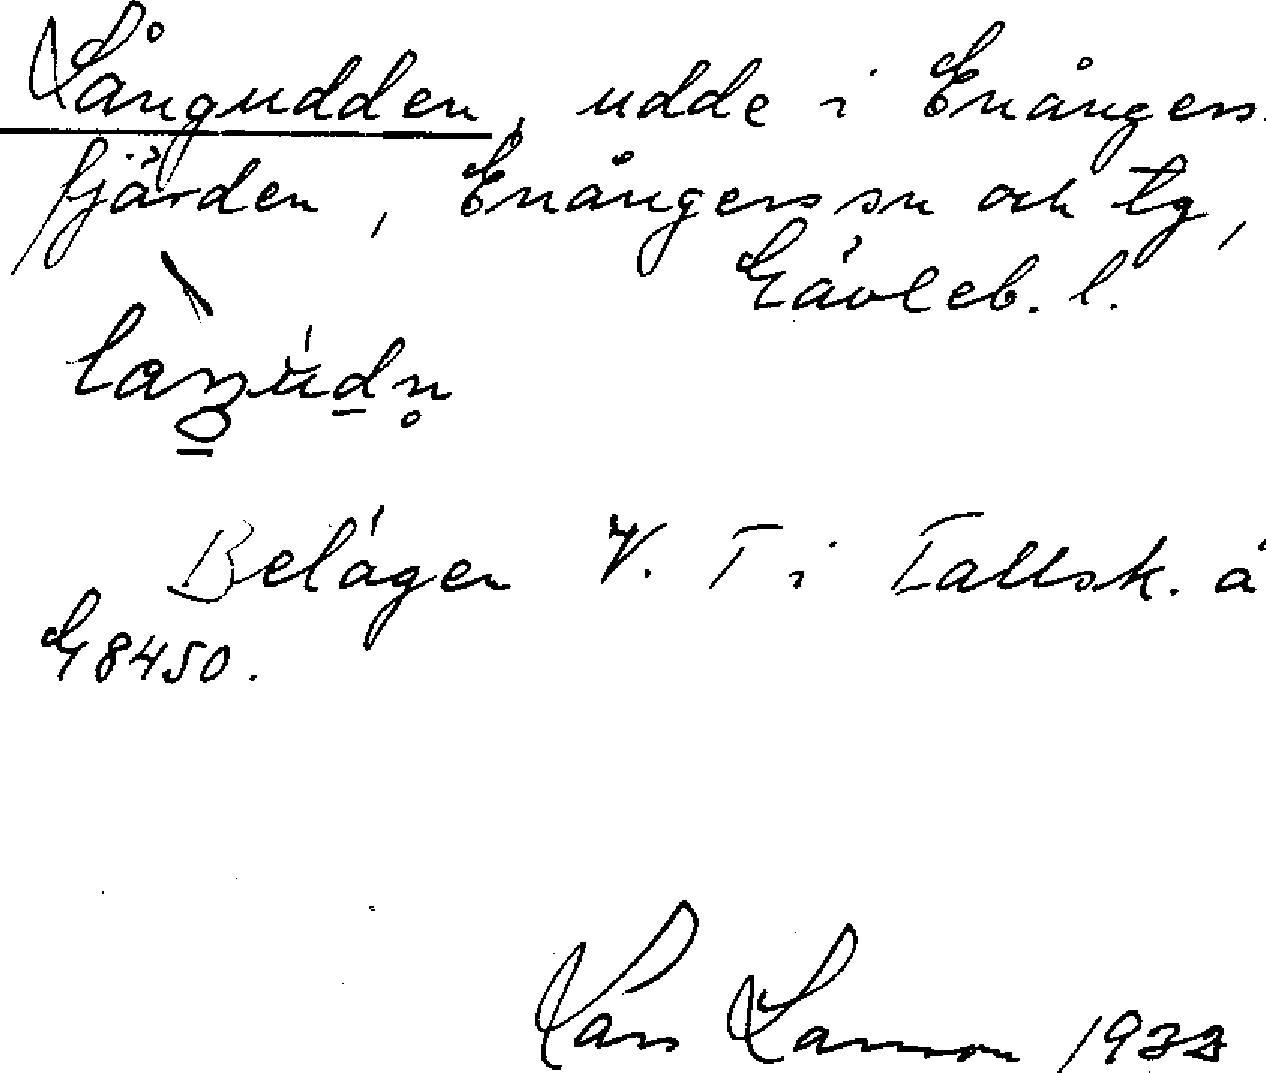 Långudden, udde i Enångers-
fjärden, Enångers sn och tg,
Gävleb. l.
Belägen V. T i Tallsk. å
G 8450.
Lars Larsson 1932